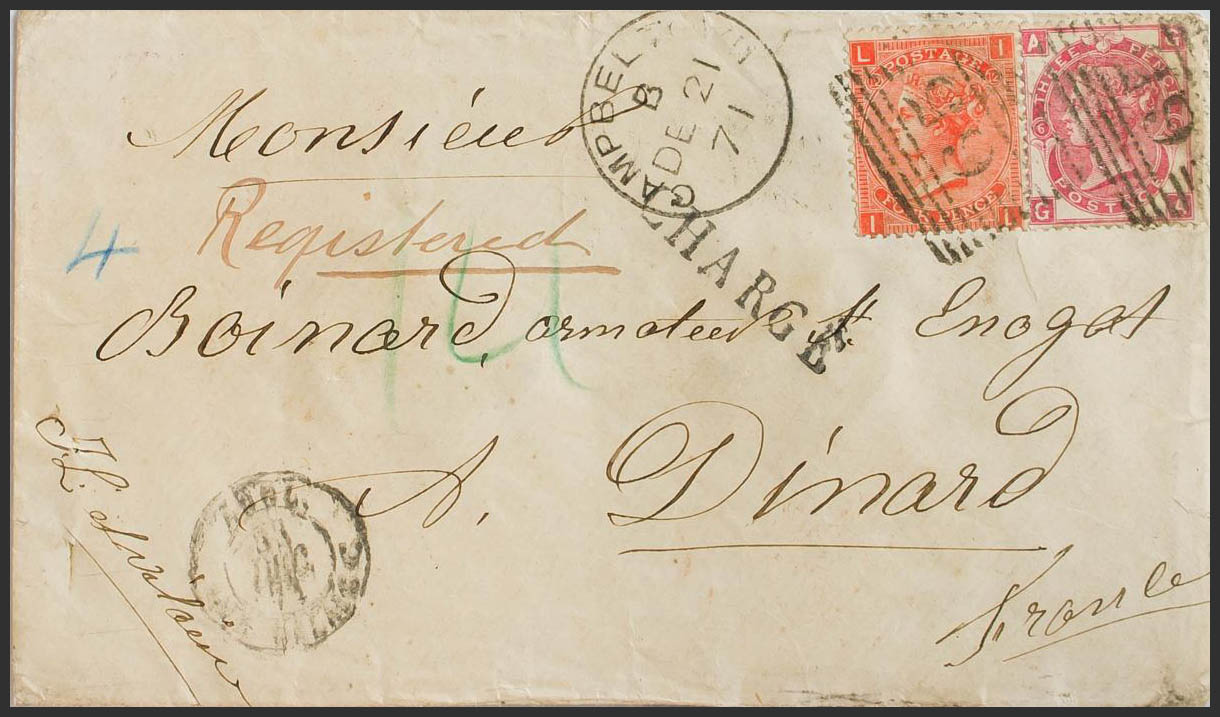 CAMPBELTOWN
B
DE 21
71
L I
POSTAGE
FOUR PENCE
I L
A G
THREE PENCE
6
POSTAGE
G A
Monsieur
Registered
CHARGÉ
4
Boinard, armateur St. Enogat
A. Dinard
France
ANGL.